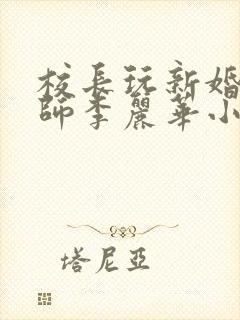 校長玩新婚
師李麗華小
塔尼亞